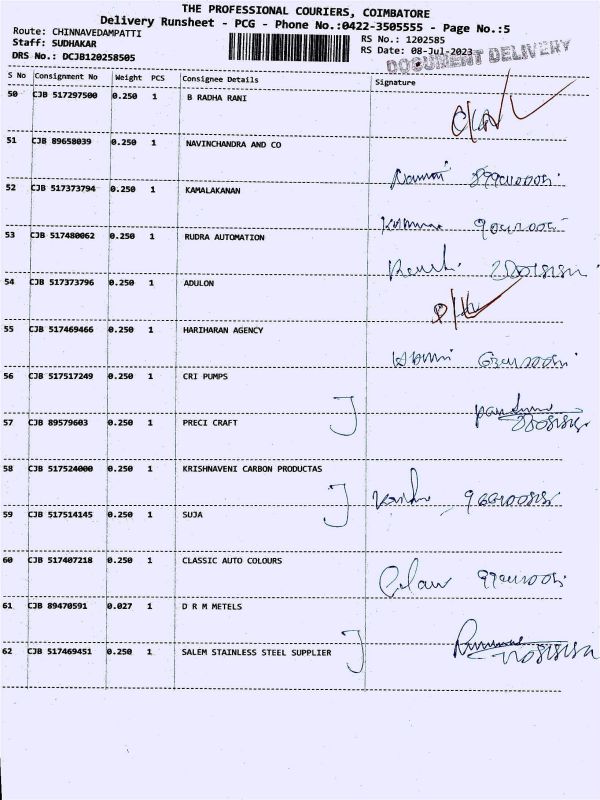 THE PROFESSIONAL COURIERS, COIMBATORE
Delivery Runsheet - PCG - Phone No.:0422-3505555 - Page No.:5
Route: CHINNAVEDAMPATTI
RS No.: 1202585
Staff: SUDHAKAR
RS Date: 08-Jul-2023
DRS No.: DCJB120258505
DOCUMENT DELIVERY
S No Consignment No Weight PCS Consignee Details Signature
50 CJB 517297500 0.250 1 B RADHA RANI
51 CJB 89658039 0.250 1 NAVINCHANDRA AND CO
52 CJB 517373794 0.250 1 KAMALAKANAN
53 CJB 517480062 0.250 1 RUDRA AUTOMATION
54 CJB 517373796 0.250 1 ADULON
55 CJB 517469466 0.250 1 HARIHARAN AGENCY
56 CJB 517517249 0.250 1 CRI PUMPS
57 CJB 89579603 0.250 1 PRECI CRAFT
58 CJB 517524000 0.250 1 KRISHNAVENI CARBON PRODUCTAS
59 CJB 517514145 0.250 1 SUJA
60 CJB 517407218 0.250 1 CLASSIC AUTO COLOURS
61 CJB 89470591 0.027 1 D R M METELS
62 CJB 517469451 0.250 1 SALEM STAINLESS STEEL SUPPLIER